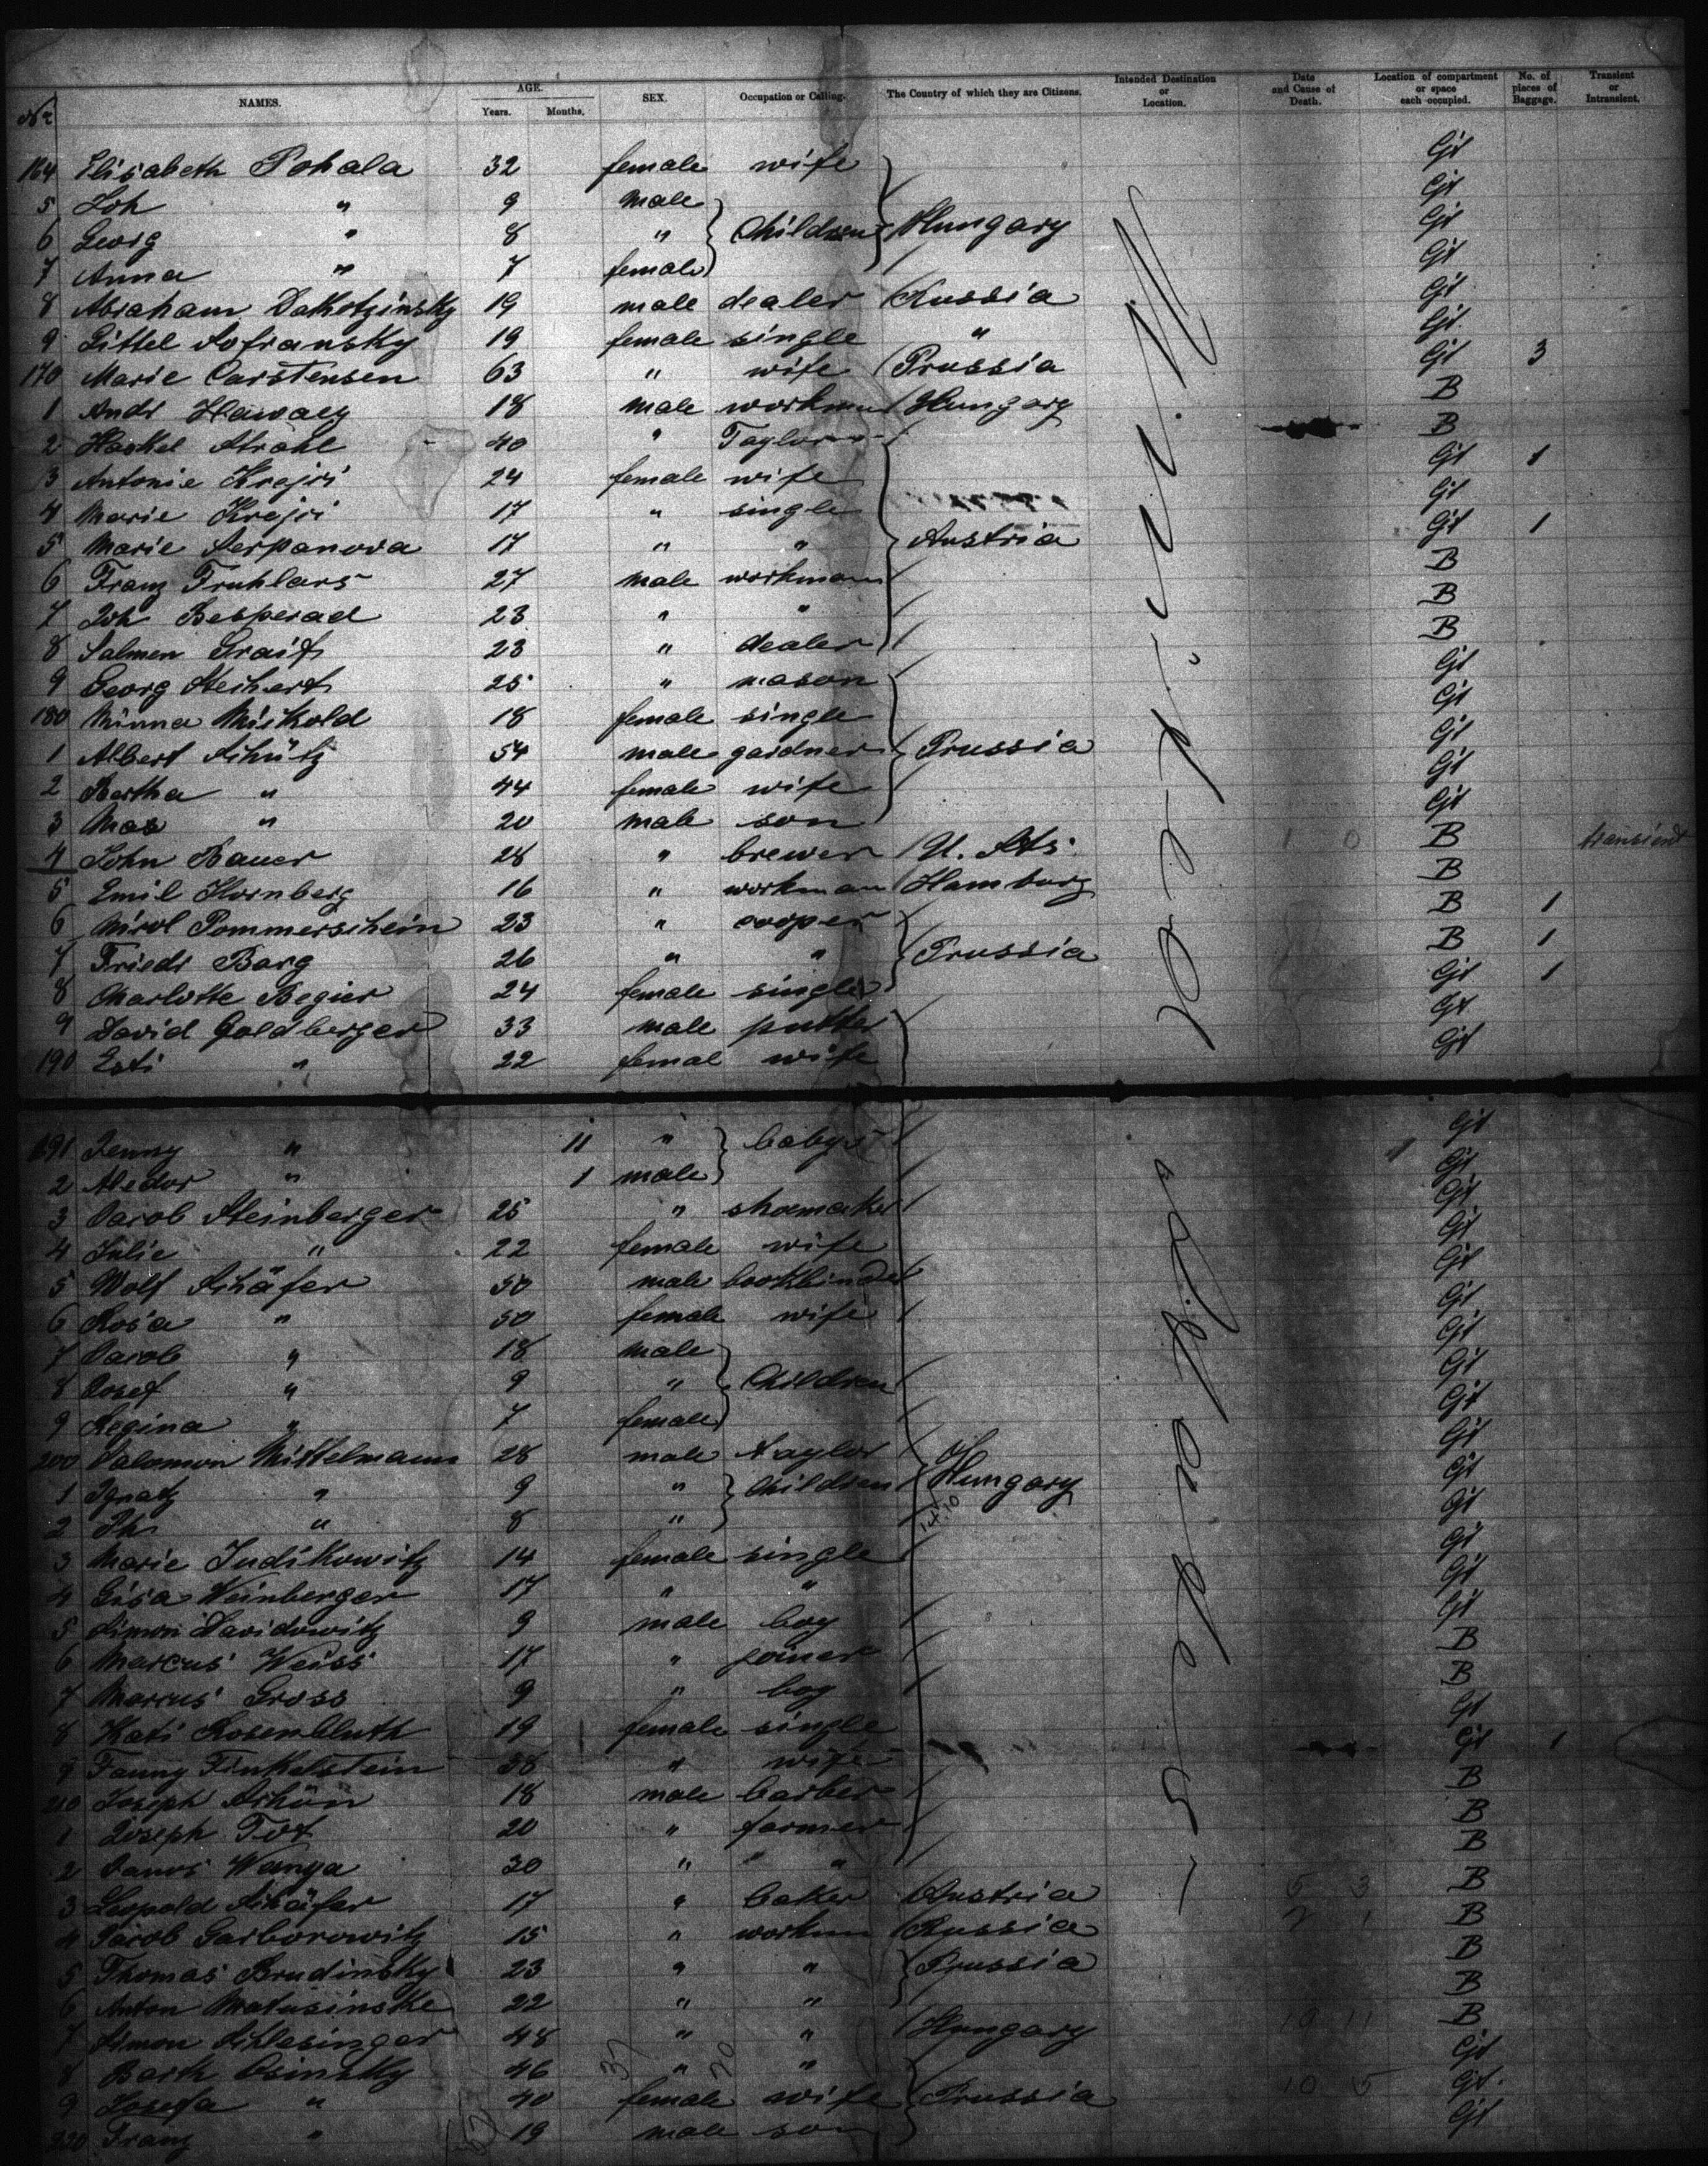 No NAMES. AGE. Years. Months. SEX. Occupation or Calling. The Country of which they are Citizens. Intended Destination or Location. Date and Cause of Death. Location of compartment or space each occupied. No. of places of Baggage. Transient or Intransient.
164 Elisabeth Pohala 32 female wife Gt
5 Joh " 9 male Gt
6 Georg " 8 " Children Hungary Gt
7 Anna " 7 female Gt
8 Abraham 19 male dealer Russia Gt
9 Gittel Sofransky 19 female single " Gt
170 Marie Carstensen 63 " wife Prussia Gt 3
1 Andr 18 male workman Hungary B
2 Haskel Strahl 40 " Taylor B
3 Antonie Krejci 24 female wife Gt 1
4 Marie Krejci 17 " single Gt
5 Marie Serpanova 17 " " Austria Gt 1
6 Franz 27 male workman B
7 Joh Besperad 23 " " B
8 Salmen 23 " dealer B
9 Georg 25 " mason Gt
180 Minna Miskold 18 female single Gt
1 Albert Schütz 54 male gardner Prussia Gt
2 Bertha " 44 female wife Gt
3 Max " 20 male son Gt
4 John Bauer 28 " brewer U. Sts. 1 0 B transient
5 Emil Kornberg 16 " workman Hamburg B
6 Pommerschein 23 " cooper B 1
7 Friedr Barg 26 " " Prussia B 1
8 Charlotte Begier 24 female single Gt 1
9 David Goldberger 33 male Gt
190 Esti " 22 femal wife Gt
New-York
191 Jenny " 11 " babys Gt
2 " 1 male Gt
3 Jacob Steinberger 25 " shomaker Gt
4 Julie " 22 female wife Gt
5 Wolf Schäfer 50 male bookbinder Gt
6 Rosa " 50 female wife Gt
7 Jacob " 18 male Gt
8 Josef " 9 " Children Gt
9 Regina " 7 female Gt
200 Salomon Mittelmann 28 male taylor Gt
1 Ignatz " 9 " Children Hungary Gt
2 " 8 " Gt
3 Marie Judikowitz 14 female single Gt
4 Gisa Weinberger 17 " " Gt
5 Simon Davidowitz 9 male boy Gt
6 Marcus Weiss 17 " joiner B
7 Marcus Gross 9 " boy B
8 Kati Rosenbluth 19 female single Gt
9 Fanny Finkelstein 38 " wife Gt 1
210 Joseph Schön 18 male barber B
1 Joseph Tot 20 " farmer B
2 Janos Wanya 30 " " B
3 Leopold Schäfer 17 " baker Austria 5 3 B
4 Jacob Garborowitz 15 " workm Russia 2 1 B
5 Thomas Brudinsky 23 " " Prussia B
6 Anton Matusinske 22 " " B
7 Simon Schlesinger 48 " " Hungary 19 11 B
8 Barth Osinsky 46 " " Gt
9 Josefa " 40 female wife Prussia 10 5 Gt
220 Franz " 19 male son Gt